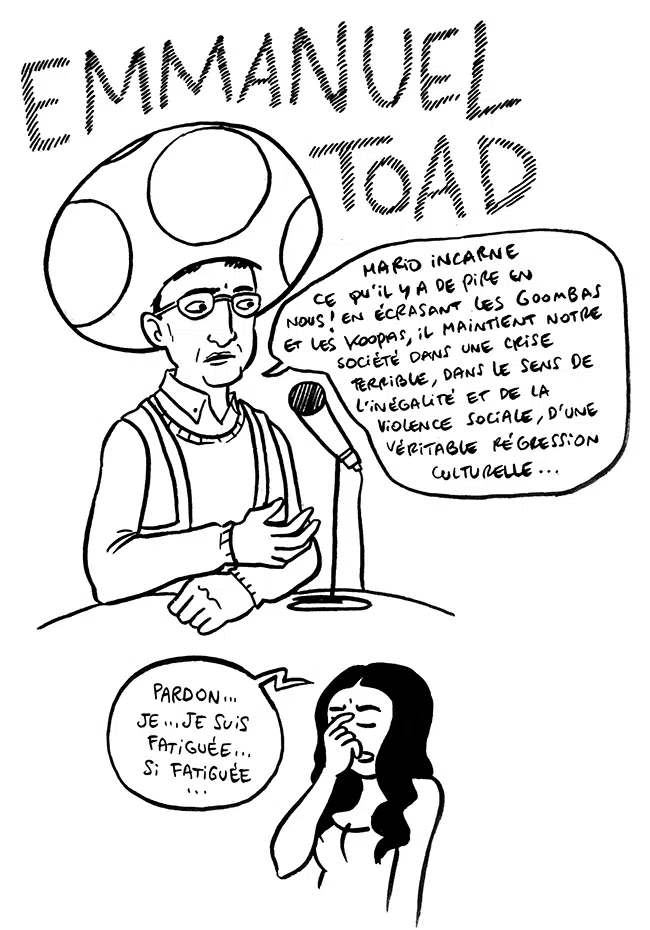 EMMANUEL
TOAD
MARIO INCARNE
CE QU'IL Y A DE PIRE EN
NOUS! EN ÉCRASANT LES GOOMBAS
ET LES KOOPAS, IL MAINTIENT NOTRE
SOCIÉTÉ DANS UNE CRISE
TERRIBLE, DANS LE SENS DE
L'INÉGALITÉ ET DE LA
VIOLENCE SOCIALE, D'UNE
VÉRITABLE RÉGRESSION
CULTURELLE...
PARDON...
JE...JE SUIS
FATIGUÉE...
SI FATIGUÉE
...